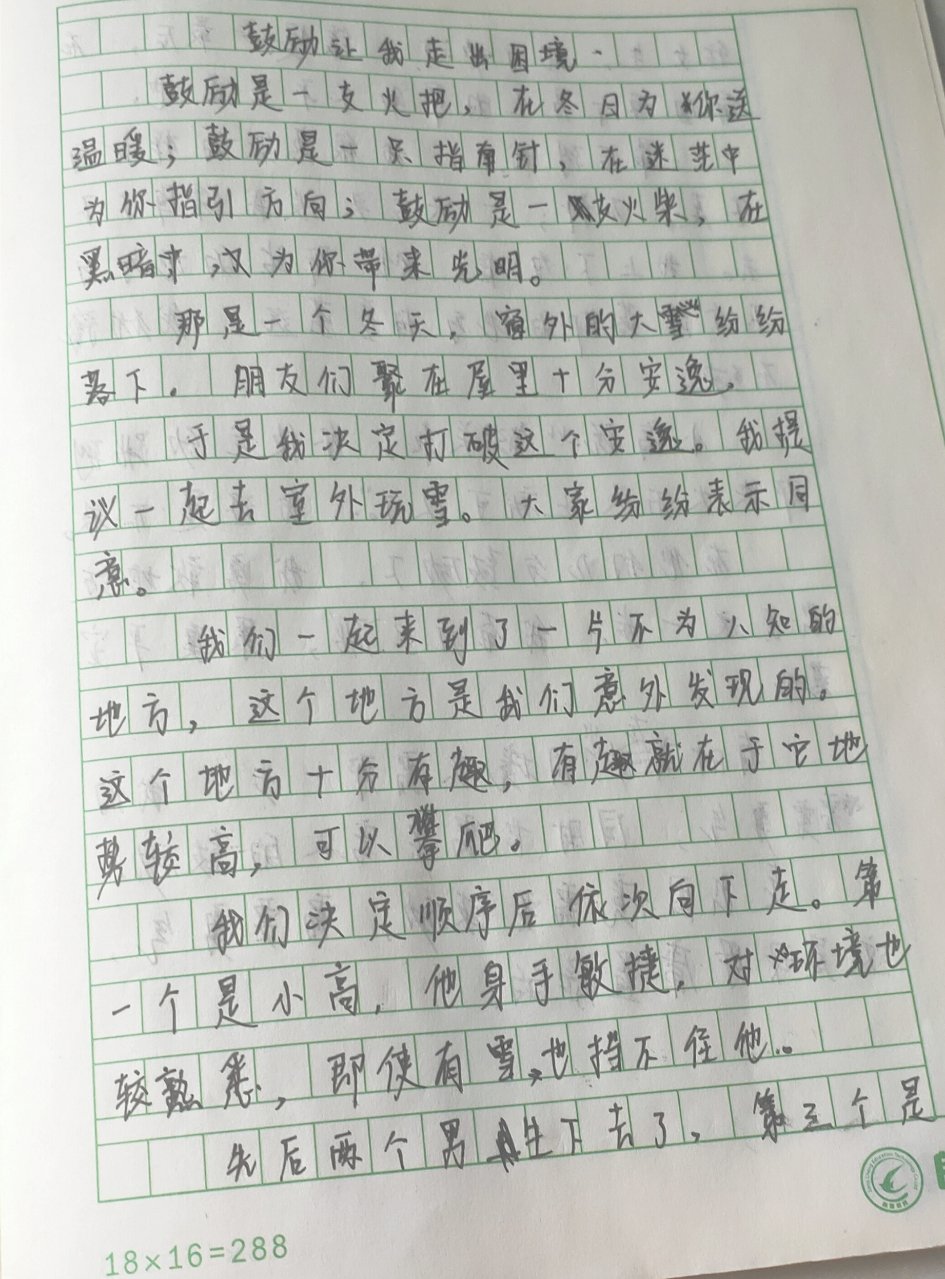 鼓励让我走出困境
鼓励是一支火把，在冬日为你送
温暖；鼓励是一只指南针，在迷茫中
为你指引方向；鼓励是一支火柴，在
黑暗中，又为你带来光明。
那是一个冬天，窗外的大雪纷纷
落下。朋友们聚在屋里十分安逸。
于是我决定打破这个安逸。我提
议一起去室外玩雪。大家纷纷表示同
意。
我们一起来到了一片不为人知的
地方，这个地方是我们意外发现的。
这个地方十分有趣，有趣就在于它地
势较高，可以攀爬。
我们决定顺序后依次向下走。第
一个是小高，他身手敏捷，对环境也
较熟悉，即使有雪，也挡不住他。
先后两个男生下去了，第三个是
18×16=288